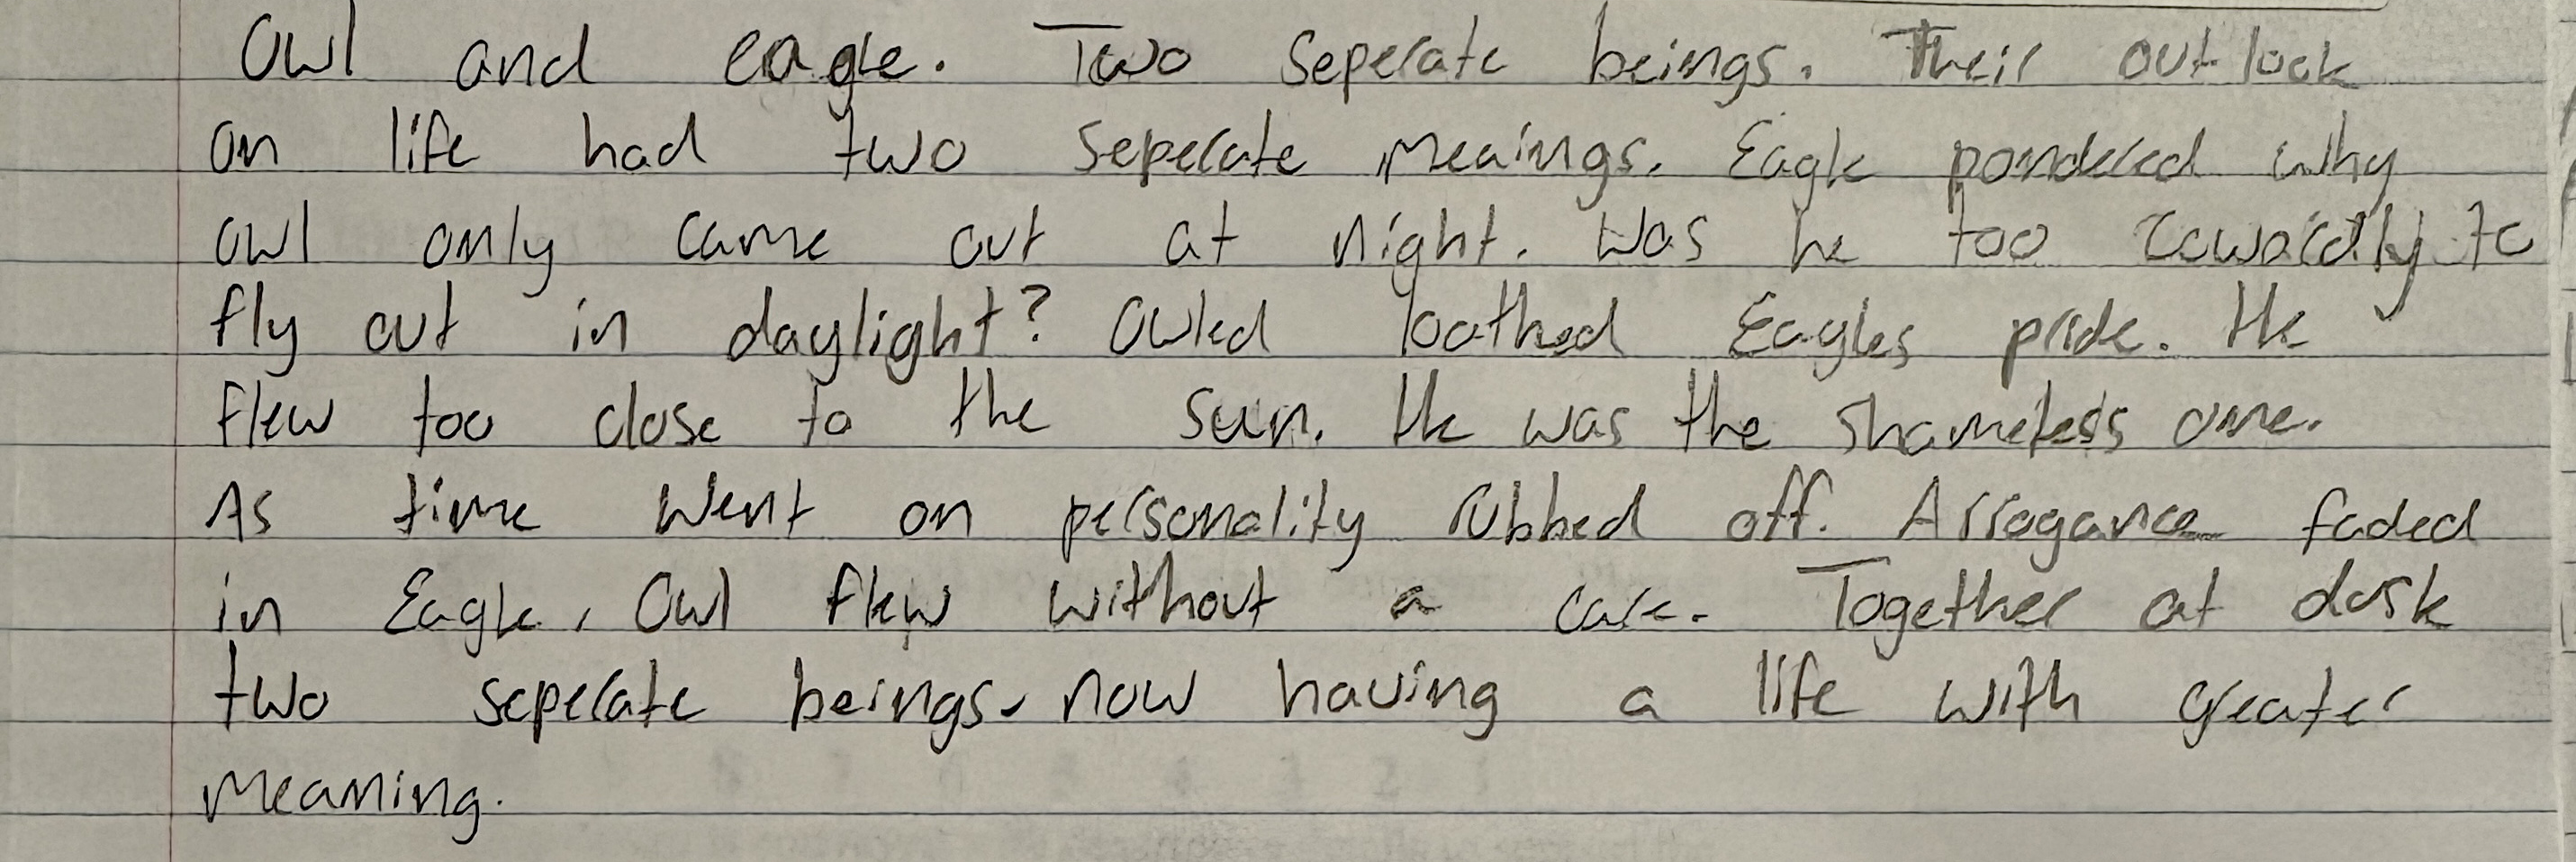 Owl and eagle. Two seperate beings. Their outlook
on life had two seperate meaings. Eagle pondered why
owl only came out at night. Was he too cowardly to
fly out in daylight? Owled loathed Eagles pride. He
flew too close to the sun. He was the shameless one.
As time went on personality rubbed off. Arrogance faded
in Eagle, Owl flew without a care. Together at dusk
two seperate beings, now having a life with greater
meaning.